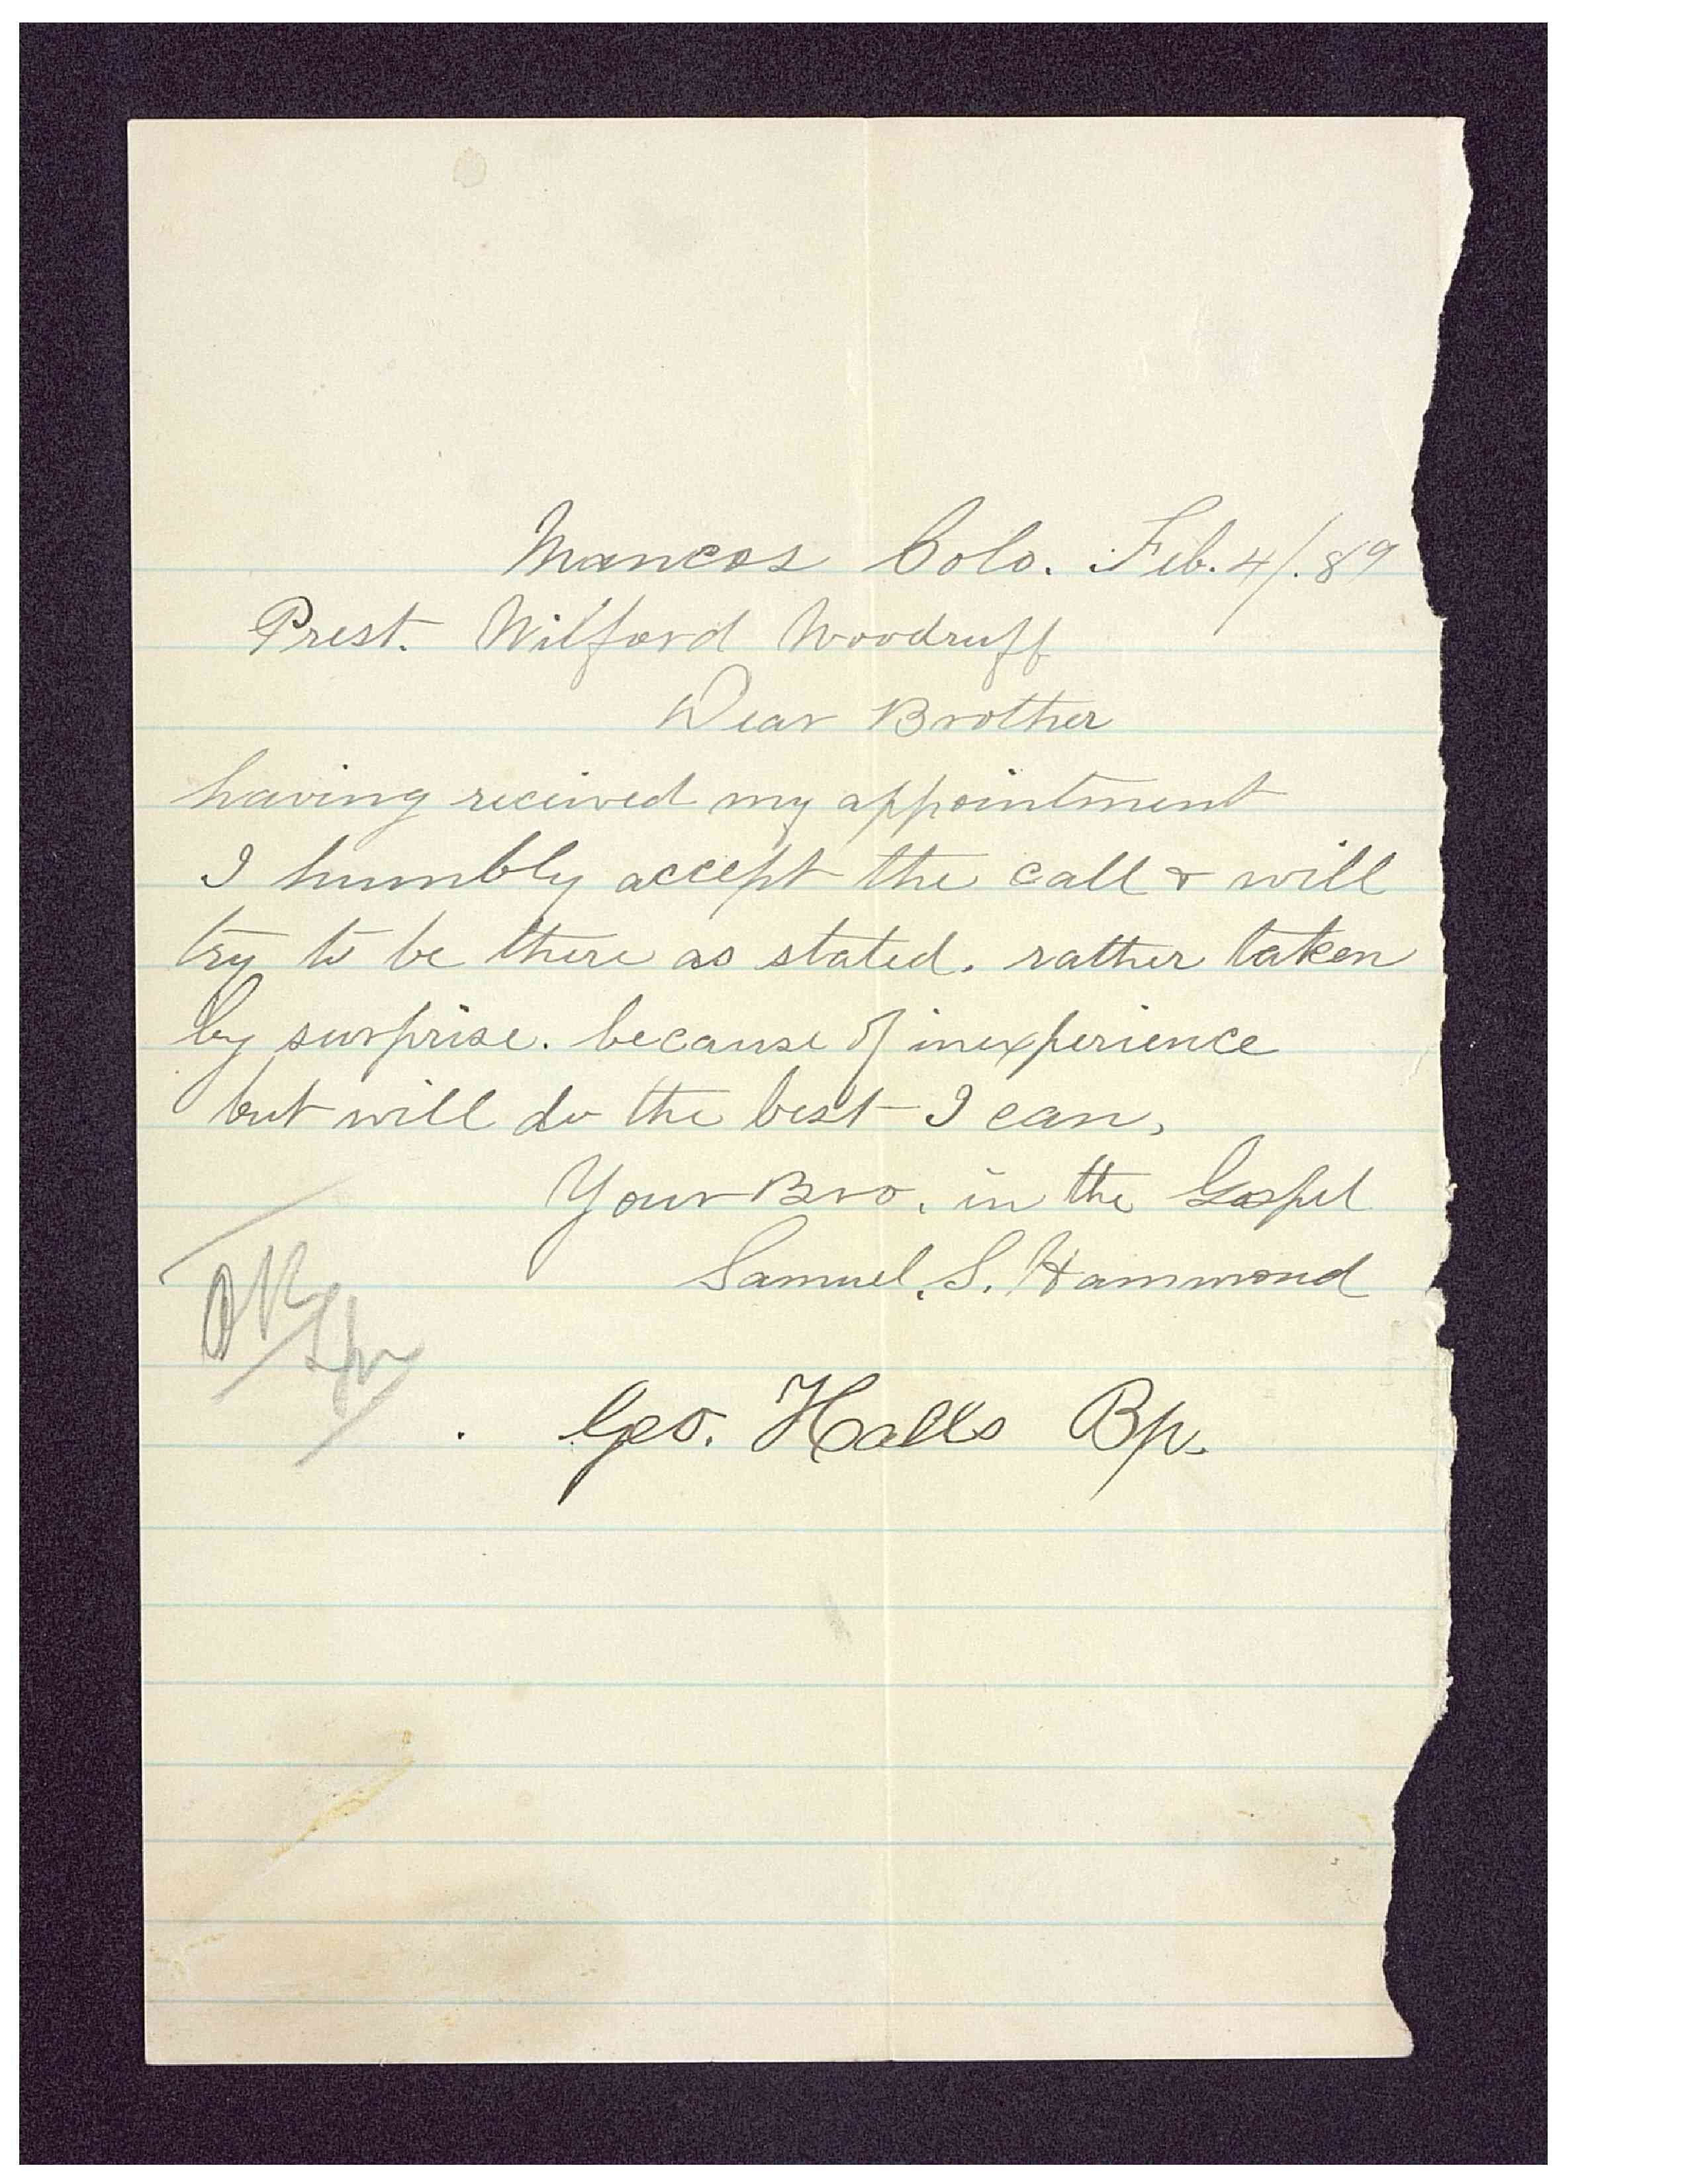 Mancos Colo. Feb. 4/.89
Prest. Wilford Woodruff
Dear Brother
having recieved my appointment
I humbly accept the call & will
try to be there as stated. rather taken
by surprise. because of inexperience
but will do the best I can,
Your Bro. in the Gospel
Samuel. S. Hammond
OK
Geo. Halls Bp.